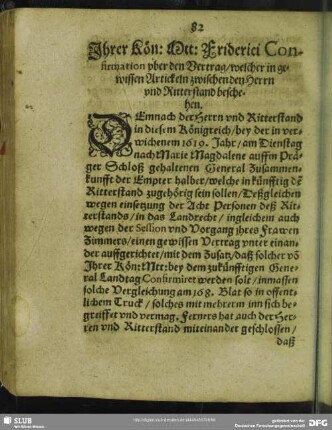 82
Jhrer Kön: Mtt: Friderici Con-
firmation vber den Vertrag / welcher in ge-
wissen Artickeln zwischen den Herrn
vnd Ritterstand besche-
hen.
DEmnach der Herrn vnd Ritterstand
in diesem Königreich / bey der in ver-
wichenem 1610. Jahr / am Dienstag
nach Marie Magdalene auffm Pra-
ger Schloß gehaltenen General Zusammen-
kunfft der Empter halber / welche in künfftig dē
Ritterstand zugehörig sein sollen / Deßgleichen
wegen einsetzung der Acht Personen deß Rit-
terstands / in das Landrecht / ingleichem auch
wegen der Session vnd Vorgang jhres Frawen
Zimmers / einen gewissen Vertrag vnter einan-
der auffgerichtet / mit dem Zusatz / daß solcher vō
Jhrer Kön: Mtt: bey dem zukünfftigen Gene-
ral Landtag Confirmiret werden solt / inmassen
solche Vergleichung am 168. Blat so in offent-
lichem Truck / solches mit mehrerm inn sich be-
greiffet vnd vermag. Ferners hat auch der Her-
ren vnd Ritterstand miteinander geschlossen /
daß
SLUB
Wir führen Wissen.
http://digital.slub-dresden.de/
gefördert von der
Deutschen Forschungsgemeinschaft
DFG